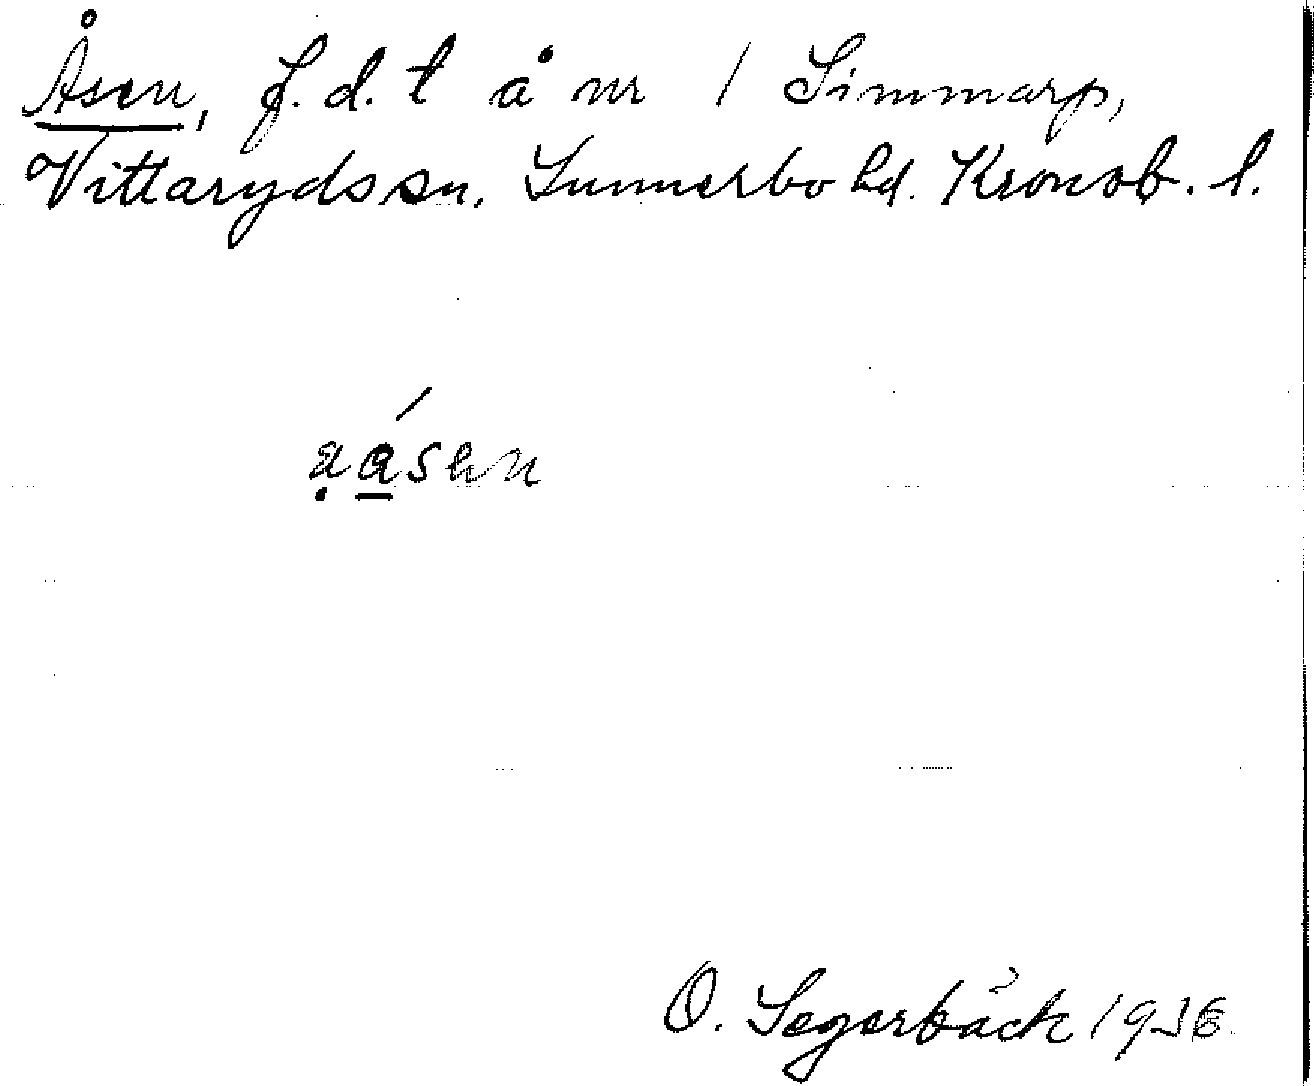 Åsen, f.d. t å nr 1 Simmarp,
Vittaryds sn. Sunnerbo hd. Kronob. l.
aåsen
O. Segerbäck 1936